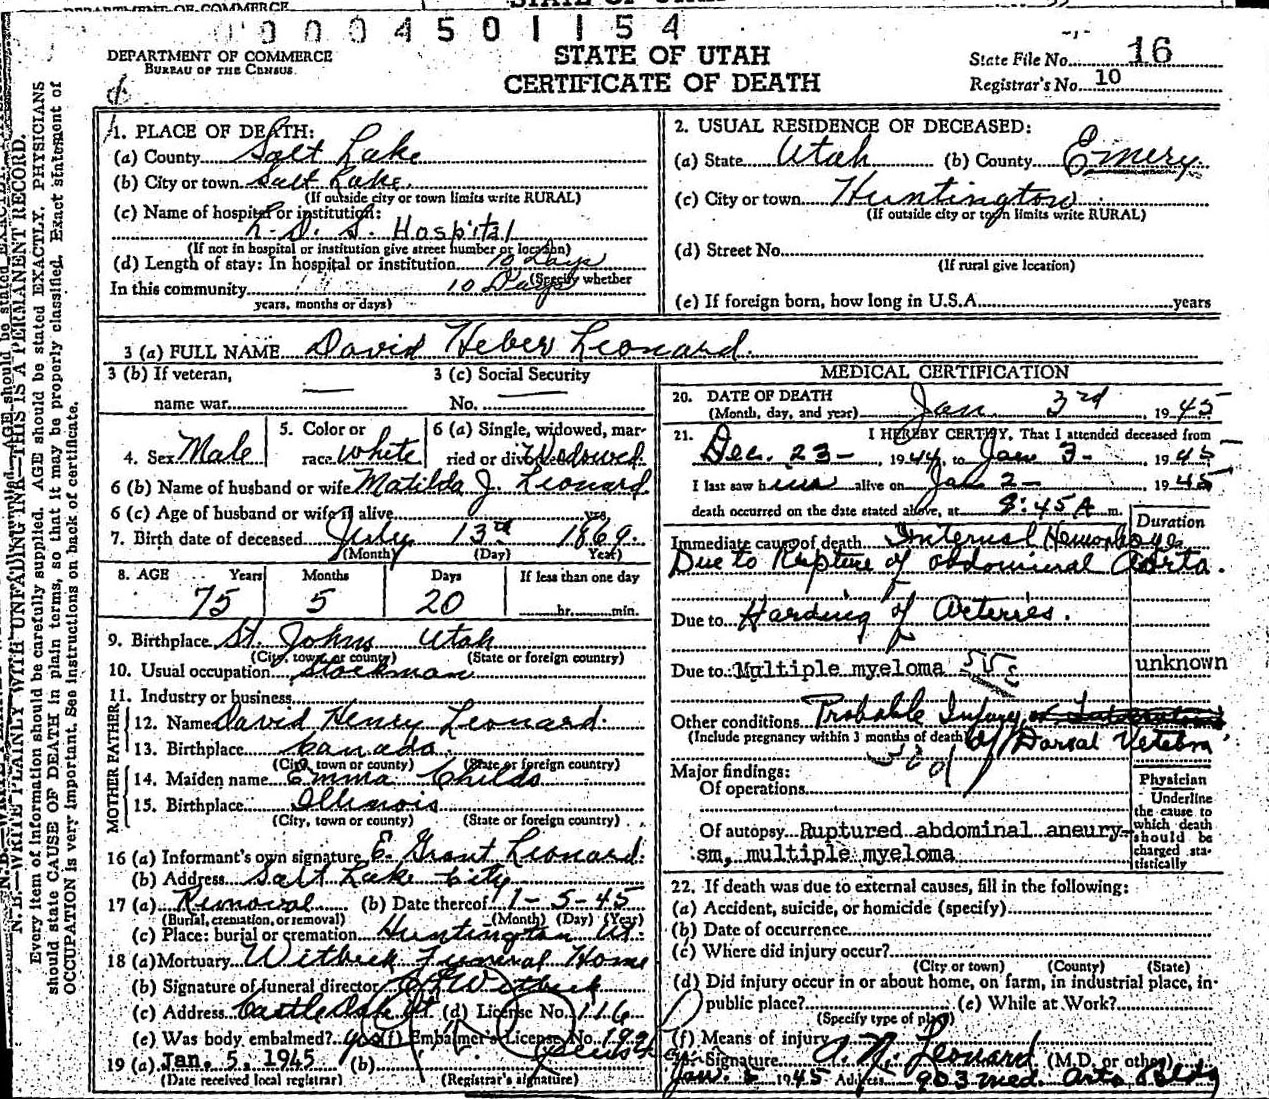 DEPARTMENT OF COMMERCE
0 0 0 4 5 0 1 1 5 4
DEPARTMENT OF COMMERCE
BUREAU OF THE CENSUS
STATE OF UTAH
CERTIFICATE OF DEATH
State File No. 16
Registrar's No. 10
N. B.—WRITE PLAINLY WITH UNFADING INK—THIS IS A PERMANENT RECORD.
Every item of information should be carefully supplied. AGE should be stated EXACTLY. PHYSICIANS
should state CAUSE OF DEATH in plain terms, so that it may be properly classified. Exact statement of
OCCUPATION is very important. See instructions on back of certificate.
1. PLACE OF DEATH:
(a) County Salt Lake
(b) City or town Salt Lake.
(If outside city or town limits write RURAL)
(c) Name of hospital or institution:
L. D. S. Hospital
(If not in hospital or institution give street number or location)
(d) Length of stay: In hospital or institution 10 Days
(Specify whether
In this community 10 Days
years, months or days)
2. USUAL RESIDENCE OF DECEASED:
(a) State Utah (b) County Emery
(c) City or town Huntington
(If outside city or town limits write RURAL)
(d) Street No.
(If rural give location)
(e) If foreign born, how long in U.S.A. years
3 (a) FULL NAME David Heber Leonard.
3 (b) If veteran,
name war
3 (c) Social Security
No.
4. Sex Male
5. Color or
race white
6 (a) Single, widowed, mar-
ried or divorced Widowed
6 (b) Name of husband or wife Matilda J. Leonard
6 (c) Age of husband or wife if alive yrs.
7. Birth date of deceased July 13th 1869.
(Month) (Day) Year)
8. AGE Years Months Days If less than one day
75 5 20 hr. min.
9. Birthplace St. Johns Utah
(City, town or county) (State or foreign country)
10. Usual occupation Stockman
11. Industry or business
FATHER
12. Name David Henry Leonard.
13. Birthplace Canada.
(City, town or county) (State or foreign country)
MOTHER
14. Maiden name Emma Childs
15. Birthplace Illinois
(City, town or county) (State or foreign country)
16 (a) Informant's own signature E. Grant Leonard.
(b) Address Salt Lake City
17 (a) Removal (b) Date thereof 1-5-45
(Burial, cremation, or removal) (Month) (Day) (Year)
(c) Place: burial or cremation Huntington Ut.
18 (a) Mortuary Witbeck Funeral Home
(b) Signature of funeral director Witbeck
(c) Address Castle Dale Ut (d) License No. 116
(e) Was body embalmed? yes (f) Embalmer's License No.
19 (a) Jan. 5, 1945 (b)
(Date received local registrar) (Registrar's signature)
MEDICAL CERTIFICATION
20. DATE OF DEATH
(Month, day, and year) Jan. 3rd, 1945
21. I HEREBY CERTIFY, That I attended deceased from
Dec. 23-, 1944, to Jan 3-, 1945
I last saw him alive on Jan 2-, 1945
death occurred on the date stated above, at 8:45 A m.
Duration
Immediate cause of death Internal Hemorhage
Due to Rupture of abdominal Aorta.
Due to Harding of Arteries.
Due to Multiple myeloma unknown
Other conditions Probable Injury
(Include pregnancy within 3 months of death) of Dorsal
Major findings:
Of operations
Of autopsy Ruptured abdominal aneury-
sm, multiple myeloma
Physician
Underline
the cause to
which death
should be
charged sta-
tistically
22. If death was due to external causes, fill in the following:
(a) Accident, suicide, or homicide (specify)
(b) Date of occurrence
(c) Where did injury occur?
(City or town) (County) (State)
(d) Did injury occur in or about home, on farm, in industrial place, in-
public place? (e) While at Work?
(Specify type of place)
(f) Means of injury
Signature A. N. Leonard (M.D. or other)
1945 Address 903 Med. Arts Bldg